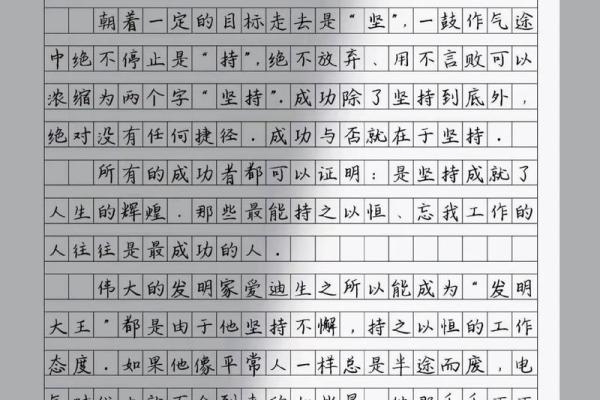 朝着一定的目标走去是“坚”,一鼓作气途
中绝不停止是“持”,绝不放弃、用不言败可以
浓缩为两个字“坚持”.成功除了坚持到底外,
绝对没有任何捷径.成功与否就在于坚持.
所有的成功者都可以证明:是坚持成就了
人生的辉煌.那些最能持之以恒、忘我工作的
人往往是最成功的人.
伟大的发明家爱迪生之所以能成为“发明
大王”都是由于他坚持不懈,持之以恒的工作
态度.如果他像平常人一样总是半途而废,电